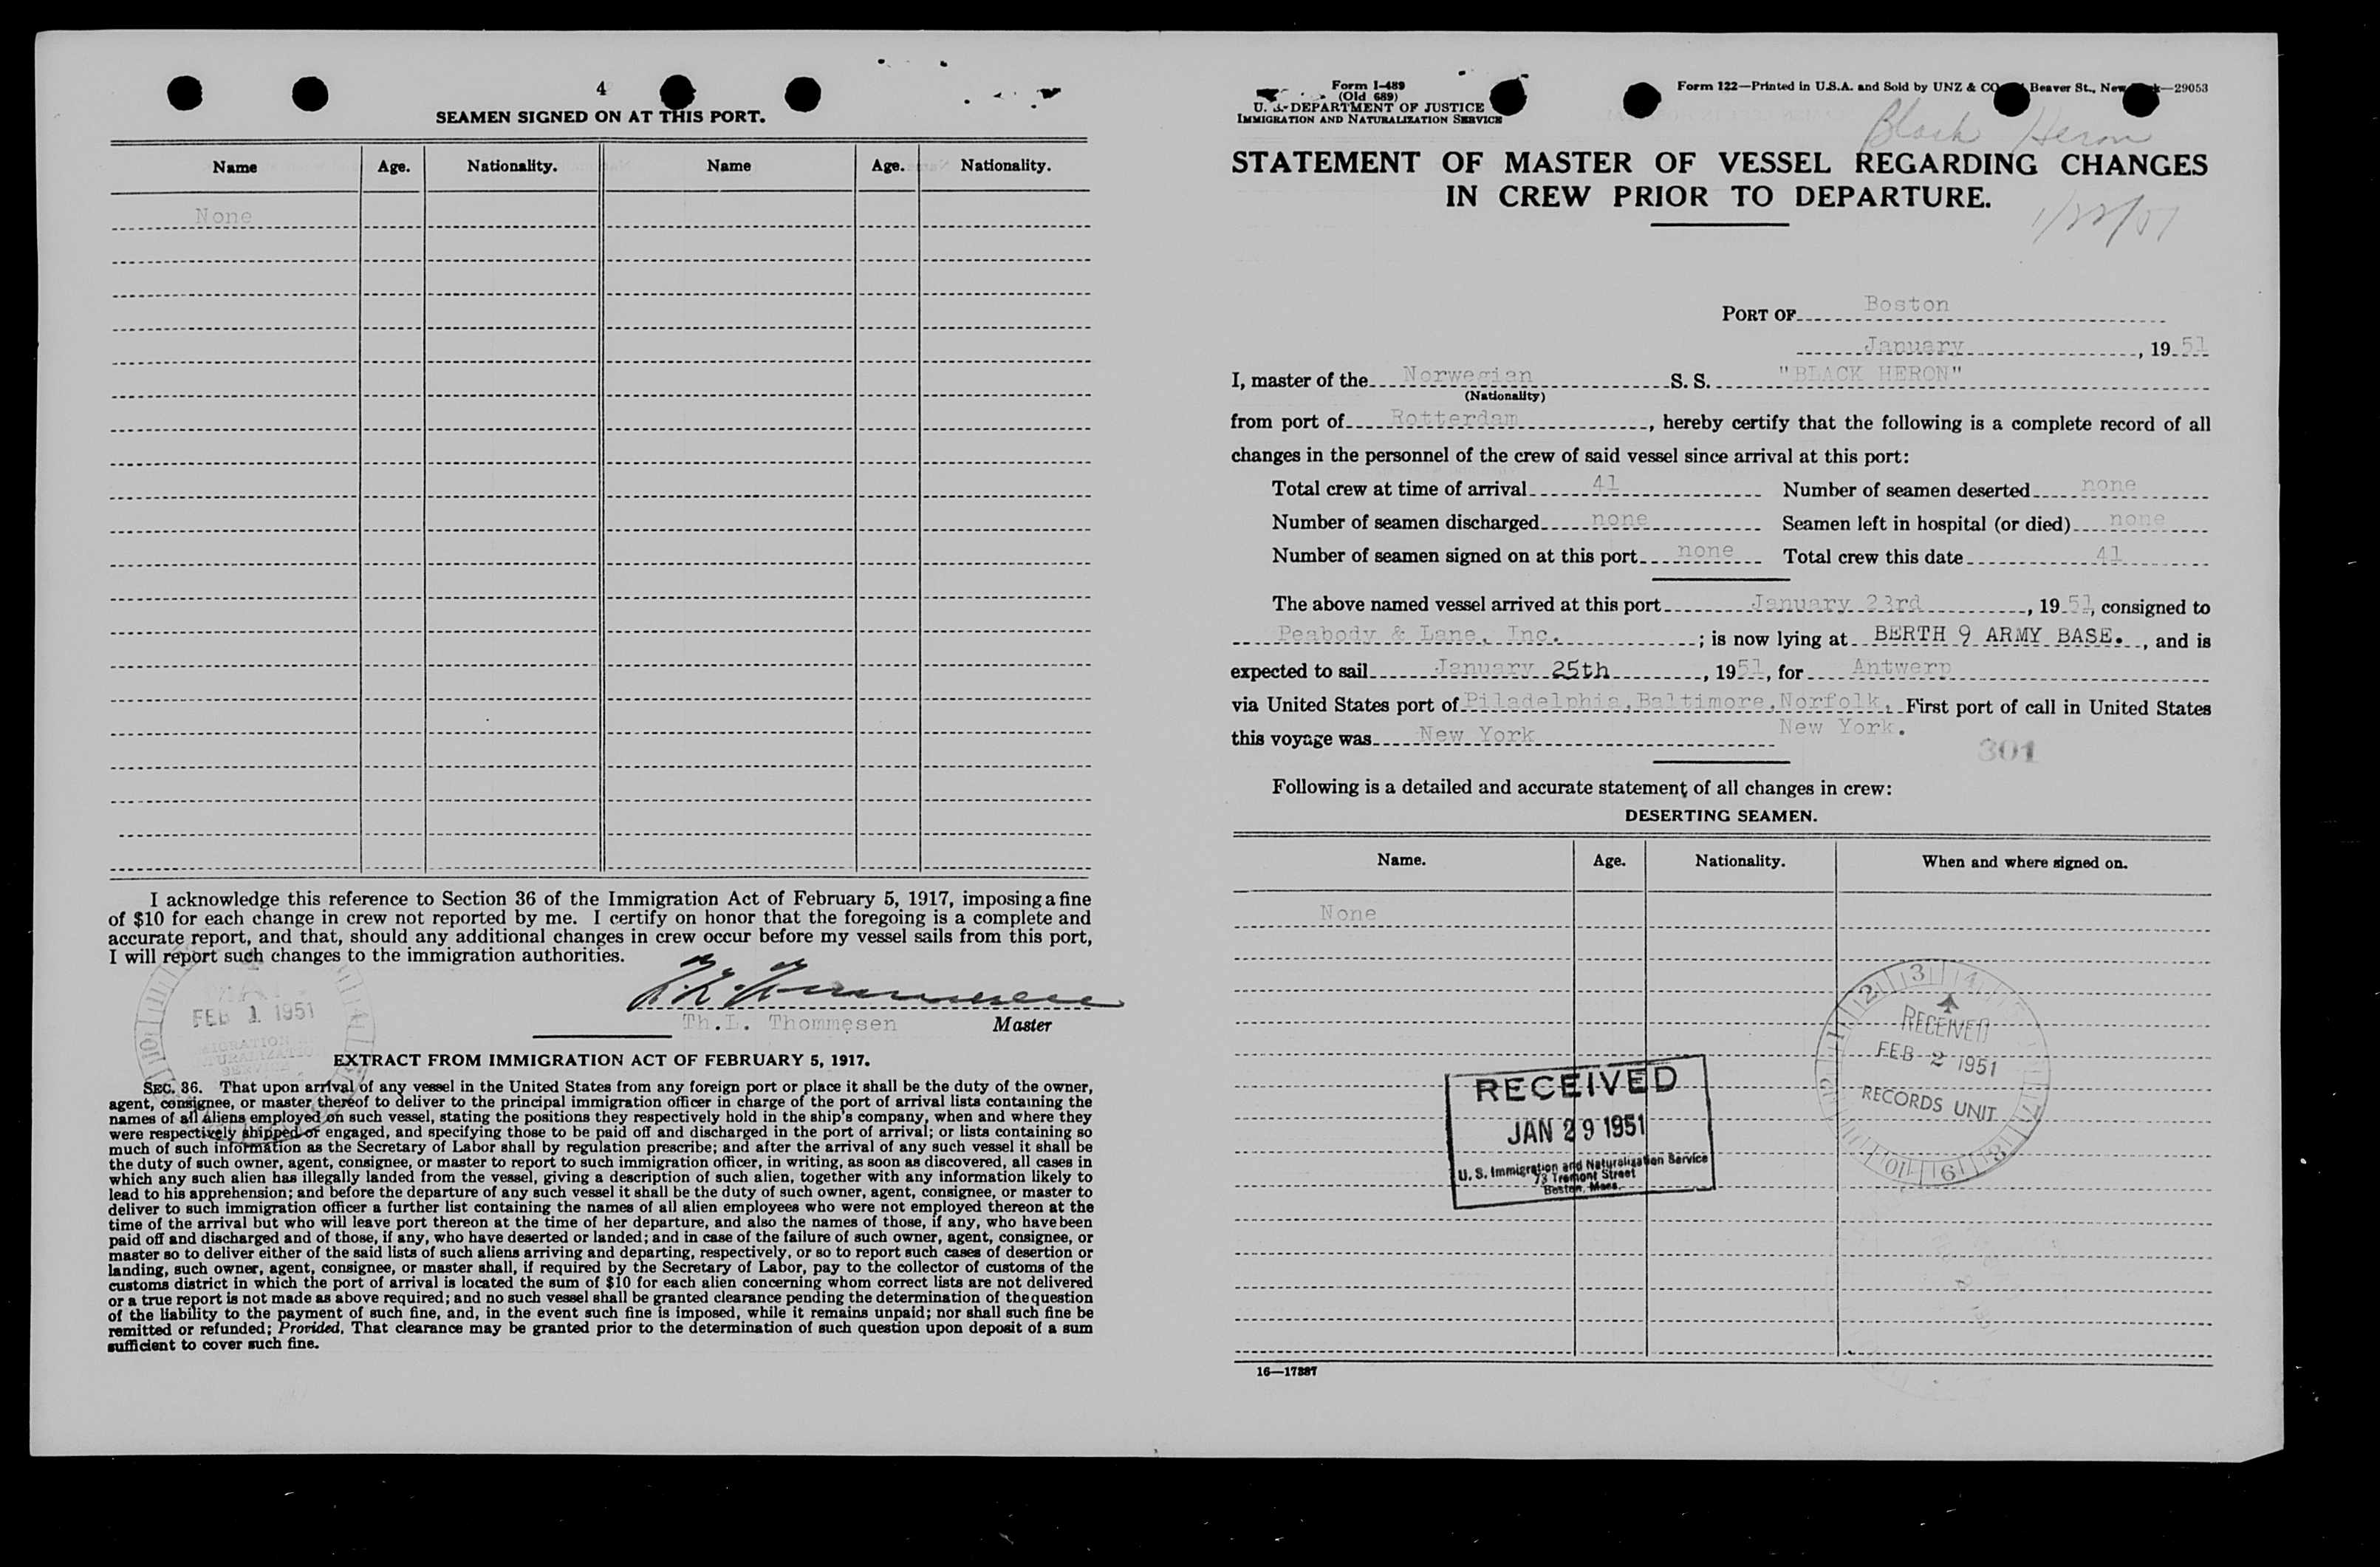 4
SEAMEN SIGNED ON AT THIS PORT.
Name Age. Nationality. Name Age. Nationality.
None
I acknowledge this reference to Section 36 of the Immigration Act of February 5, 1917, imposing a fine
of $10 for each change in crew not reported by me. I certify on honor that the foregoing is a complete and
accurate report, and that, should any additional changes in crew occur before my vessel sails from this port,
I will report such changes to the immigration authorities.
FEB 1 1951
Th.L. Thommesen Master
EXTRACT FROM IMMIGRATION ACT OF FEBRUARY 5, 1917.
SEC. 36. That upon arrival of any vessel in the United States from any foreign port or place it shall be the duty of the owner,
agent, consignee, or master thereof to deliver to the principal immigration officer in charge of the port of arrival lists containing the
names of all aliens employed on such vessel, stating the positions they respectively hold in the ship's company, when and where they
were respectively shipped or engaged, and specifying those to be paid off and discharged in the port of arrival; or lists containing so
much of such information as the Secretary of Labor shall by regulation prescribe; and after the arrival of any such vessel it shall be
the duty of such owner, agent, consignee, or master to report to such immigration officer, in writing, as soon as discovered, all cases in
which any such alien has illegally landed from the vessel, giving a description of such alien, together with any information likely to
lead to his apprehension; and before the departure of any such vessel it shall be the duty of such owner, agent, consignee, or master to
deliver to such immigration officer a further list containing the names of all alien employees who were not employed thereon at the
time of the arrival but who will leave port thereon at the time of her departure, and also the names of those, if any, who have been
paid off and discharged and of those, if any, who have deserted or landed; and in case of the failure of such owner, agent, consignee, or
master so to deliver either of the said lists of such aliens arriving and departing, respectively, or so to report such cases of desertion or
landing, such owner, agent, consignee, or master shall, if required by the Secretary of Labor, pay to the collector of customs of the
customs district in which the port of arrival is located the sum of $10 for each alien concerning whom correct lists are not delivered
or a true report is not made as above required; and no such vessel shall be granted clearance pending the determination of the question
of the liability to the payment of such fine, and, in the event such fine is imposed, while it remains unpaid; nor shall such fine be
remitted or refunded; Provided, That clearance may be granted prior to the determination of such question upon deposit of a sum
sufficient to cover such fine.
Form I-489
(Old 689)
U. S. DEPARTMENT OF JUSTICE
IMMIGRATION AND NATURALIZATION SERVICE
Form 122—Printed in U.S.A. and Sold by UNZ & CO Beaver St., New —29053
Black Heron
STATEMENT OF MASTER OF VESSEL REGARDING CHANGES
IN CREW PRIOR TO DEPARTURE.
1/22/51
PORT OF Boston
January, 1951
I, master of the Norwegian S. S. "BLACK HERON"
(Nationality)
from port of Rotterdam, hereby certify that the following is a complete record of all
changes in the personnel of the crew of said vessel since arrival at this port:
Total crew at time of arrival 41 Number of seamen deserted none
Number of seamen discharged none Seamen left in hospital (or died) none
Number of seamen signed on at this port none Total crew this date 41
The above named vessel arrived at this port January 23rd, 1951, consigned to
Peabody & Lane, Inc.; is now lying at BERTH 9 ARMY BASE., and is
expected to sail January 25th, 1951, for Antwerp
via United States port of Piladelphia, Baltimore, Norfolk, First port of call in United States
New York.
this voyage was New York
301
Following is a detailed and accurate statement of all changes in crew:
DESERTING SEAMEN.
Name. Age. Nationality. When and where signed on.
None
RECEIVED
FEB 2 1951
RECORDS UNIT
RECEIVED
JAN 29 1951
U. S. Immigration and Naturalization Service
73 Tremont Street
Boston, Mass.
16—17387